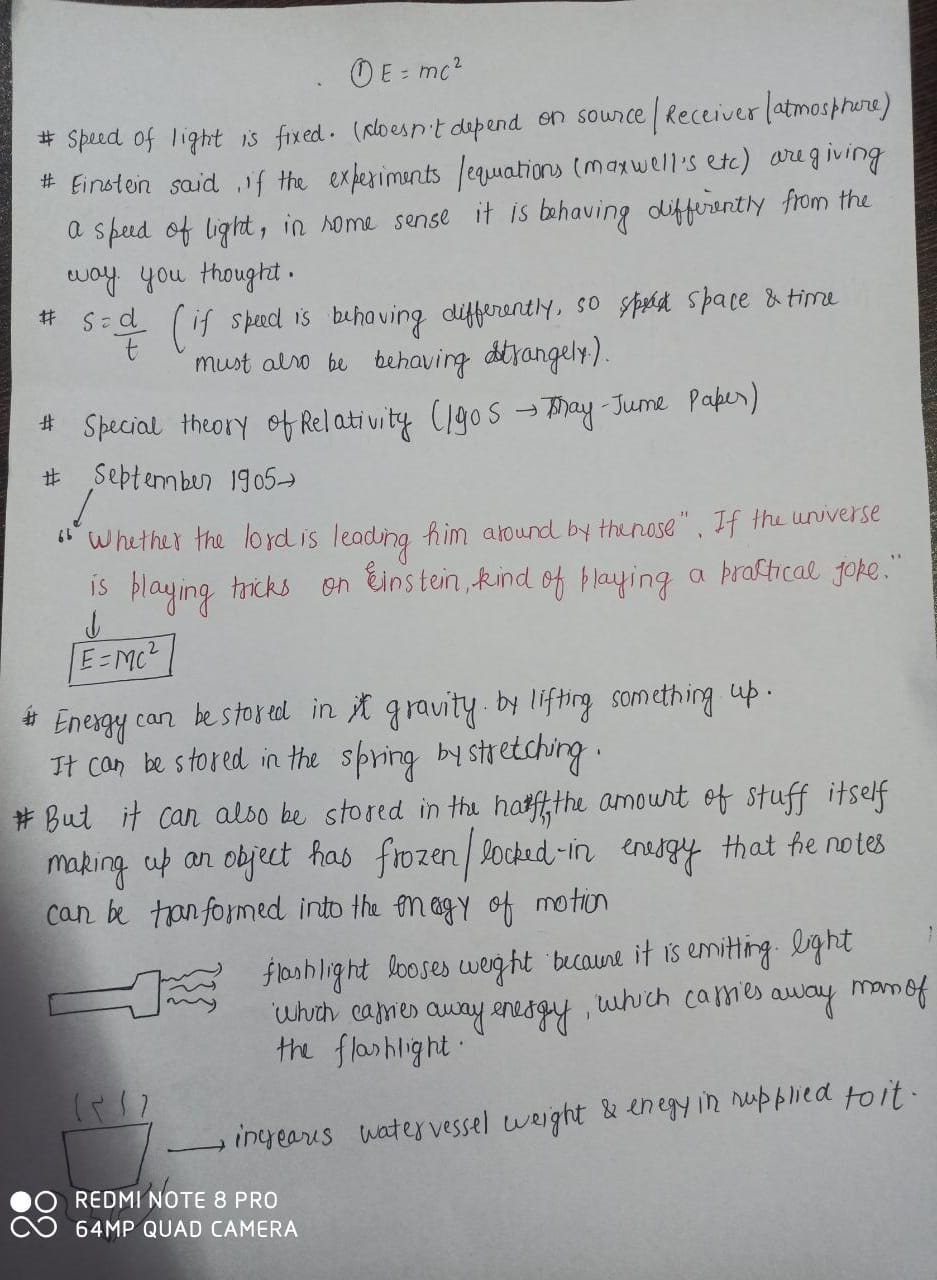 ① E = mc²
# Speed of light is fixed. (doesn't depend on source / Receiver / atmosphere)
# Einstein said, if the experiments /equations (maxwell's etc) are giving
a speed of light, in some sense it is behaving differently from the
way you thought.
# s = d/t (if speed is behaving differently, so space & time
must also be behaving strangely).
# Special theory of Relativity (1905 → May-June Paper)
# September 1905→
"Whether the lord is leading him around by the nose". If the universe
is playing tricks on Einstein, kind of playing a practical joke."
↓
E = MC²
# Energy can be stored in gravity. by lifting something up.
It can be stored in the spring by stretching.
# But it can also be stored in the the amount of stuff itself
making up an object has frozen / locked-in energy that he notes
can be tranformed into the energy of motion
flashlight looses weight because it is emitting light
which carries away energy, which carries away mass of
the flashlight.
→ increases water vessel weight & enegy is supplied to it.
REDMI NOTE 8 PRO
64MP QUAD CAMERA